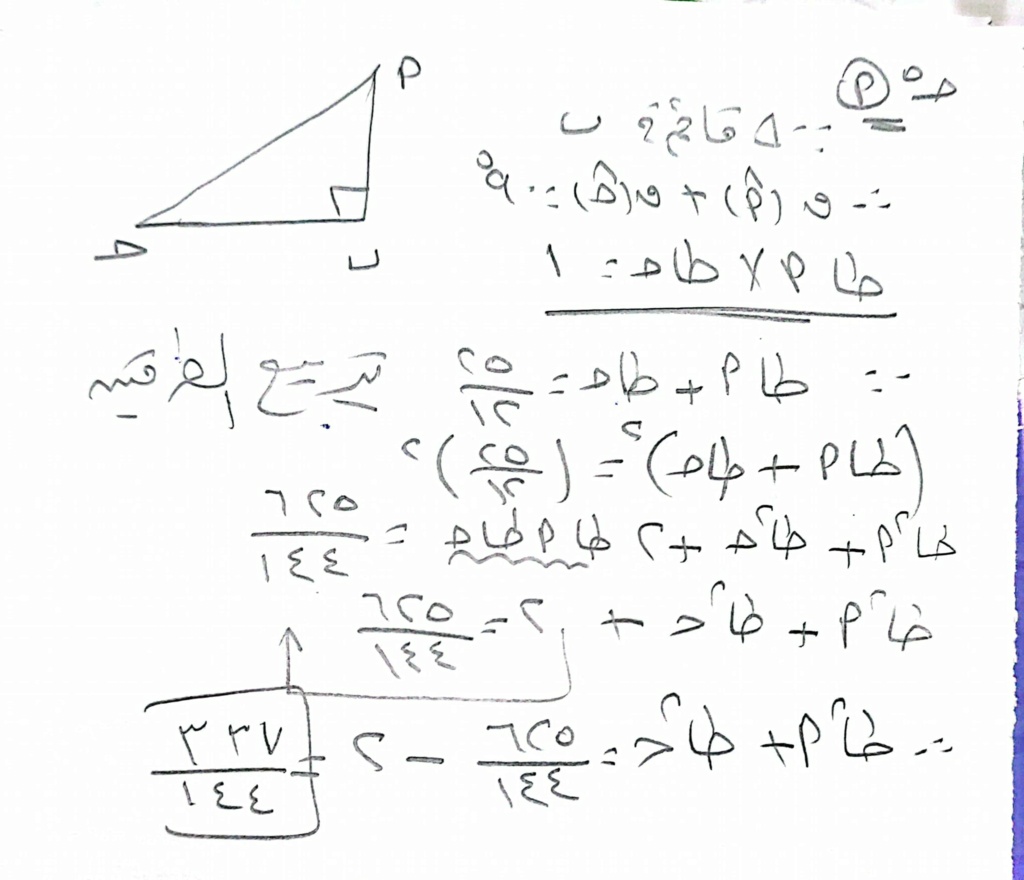 حـ٥ (أ)
∵ △ قائم فى ب
∴ ق(أ̂) + ق(حـ̂) = ٩٠°
طا أ × طا حـ = ١
∵ طا أ + طا حـ = ٢٥/١٢ تربيع الطرفين
(طا أ + طا حـ)² = (٢٥/١٢)²
طا²أ + طا²حـ + ٢ طا أ طا حـ = ٦٢٥/١٤٤
طا²أ + طا²حـ + ٢ = ٦٢٥/١٤٤
∴ طا²أ + طا²حـ = ٦٢٥/١٤٤ − ٢ = ٣٣٧/١٤٤
أ
ب
حـ